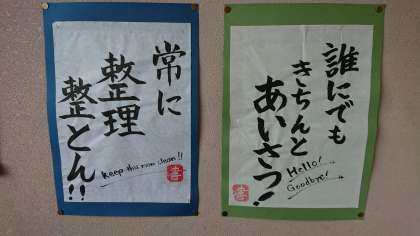 常に
整理
整とん!!
Keep this room clean!!
誰にでも
きちんと
あいさつ!
Hello!
Goodbye!